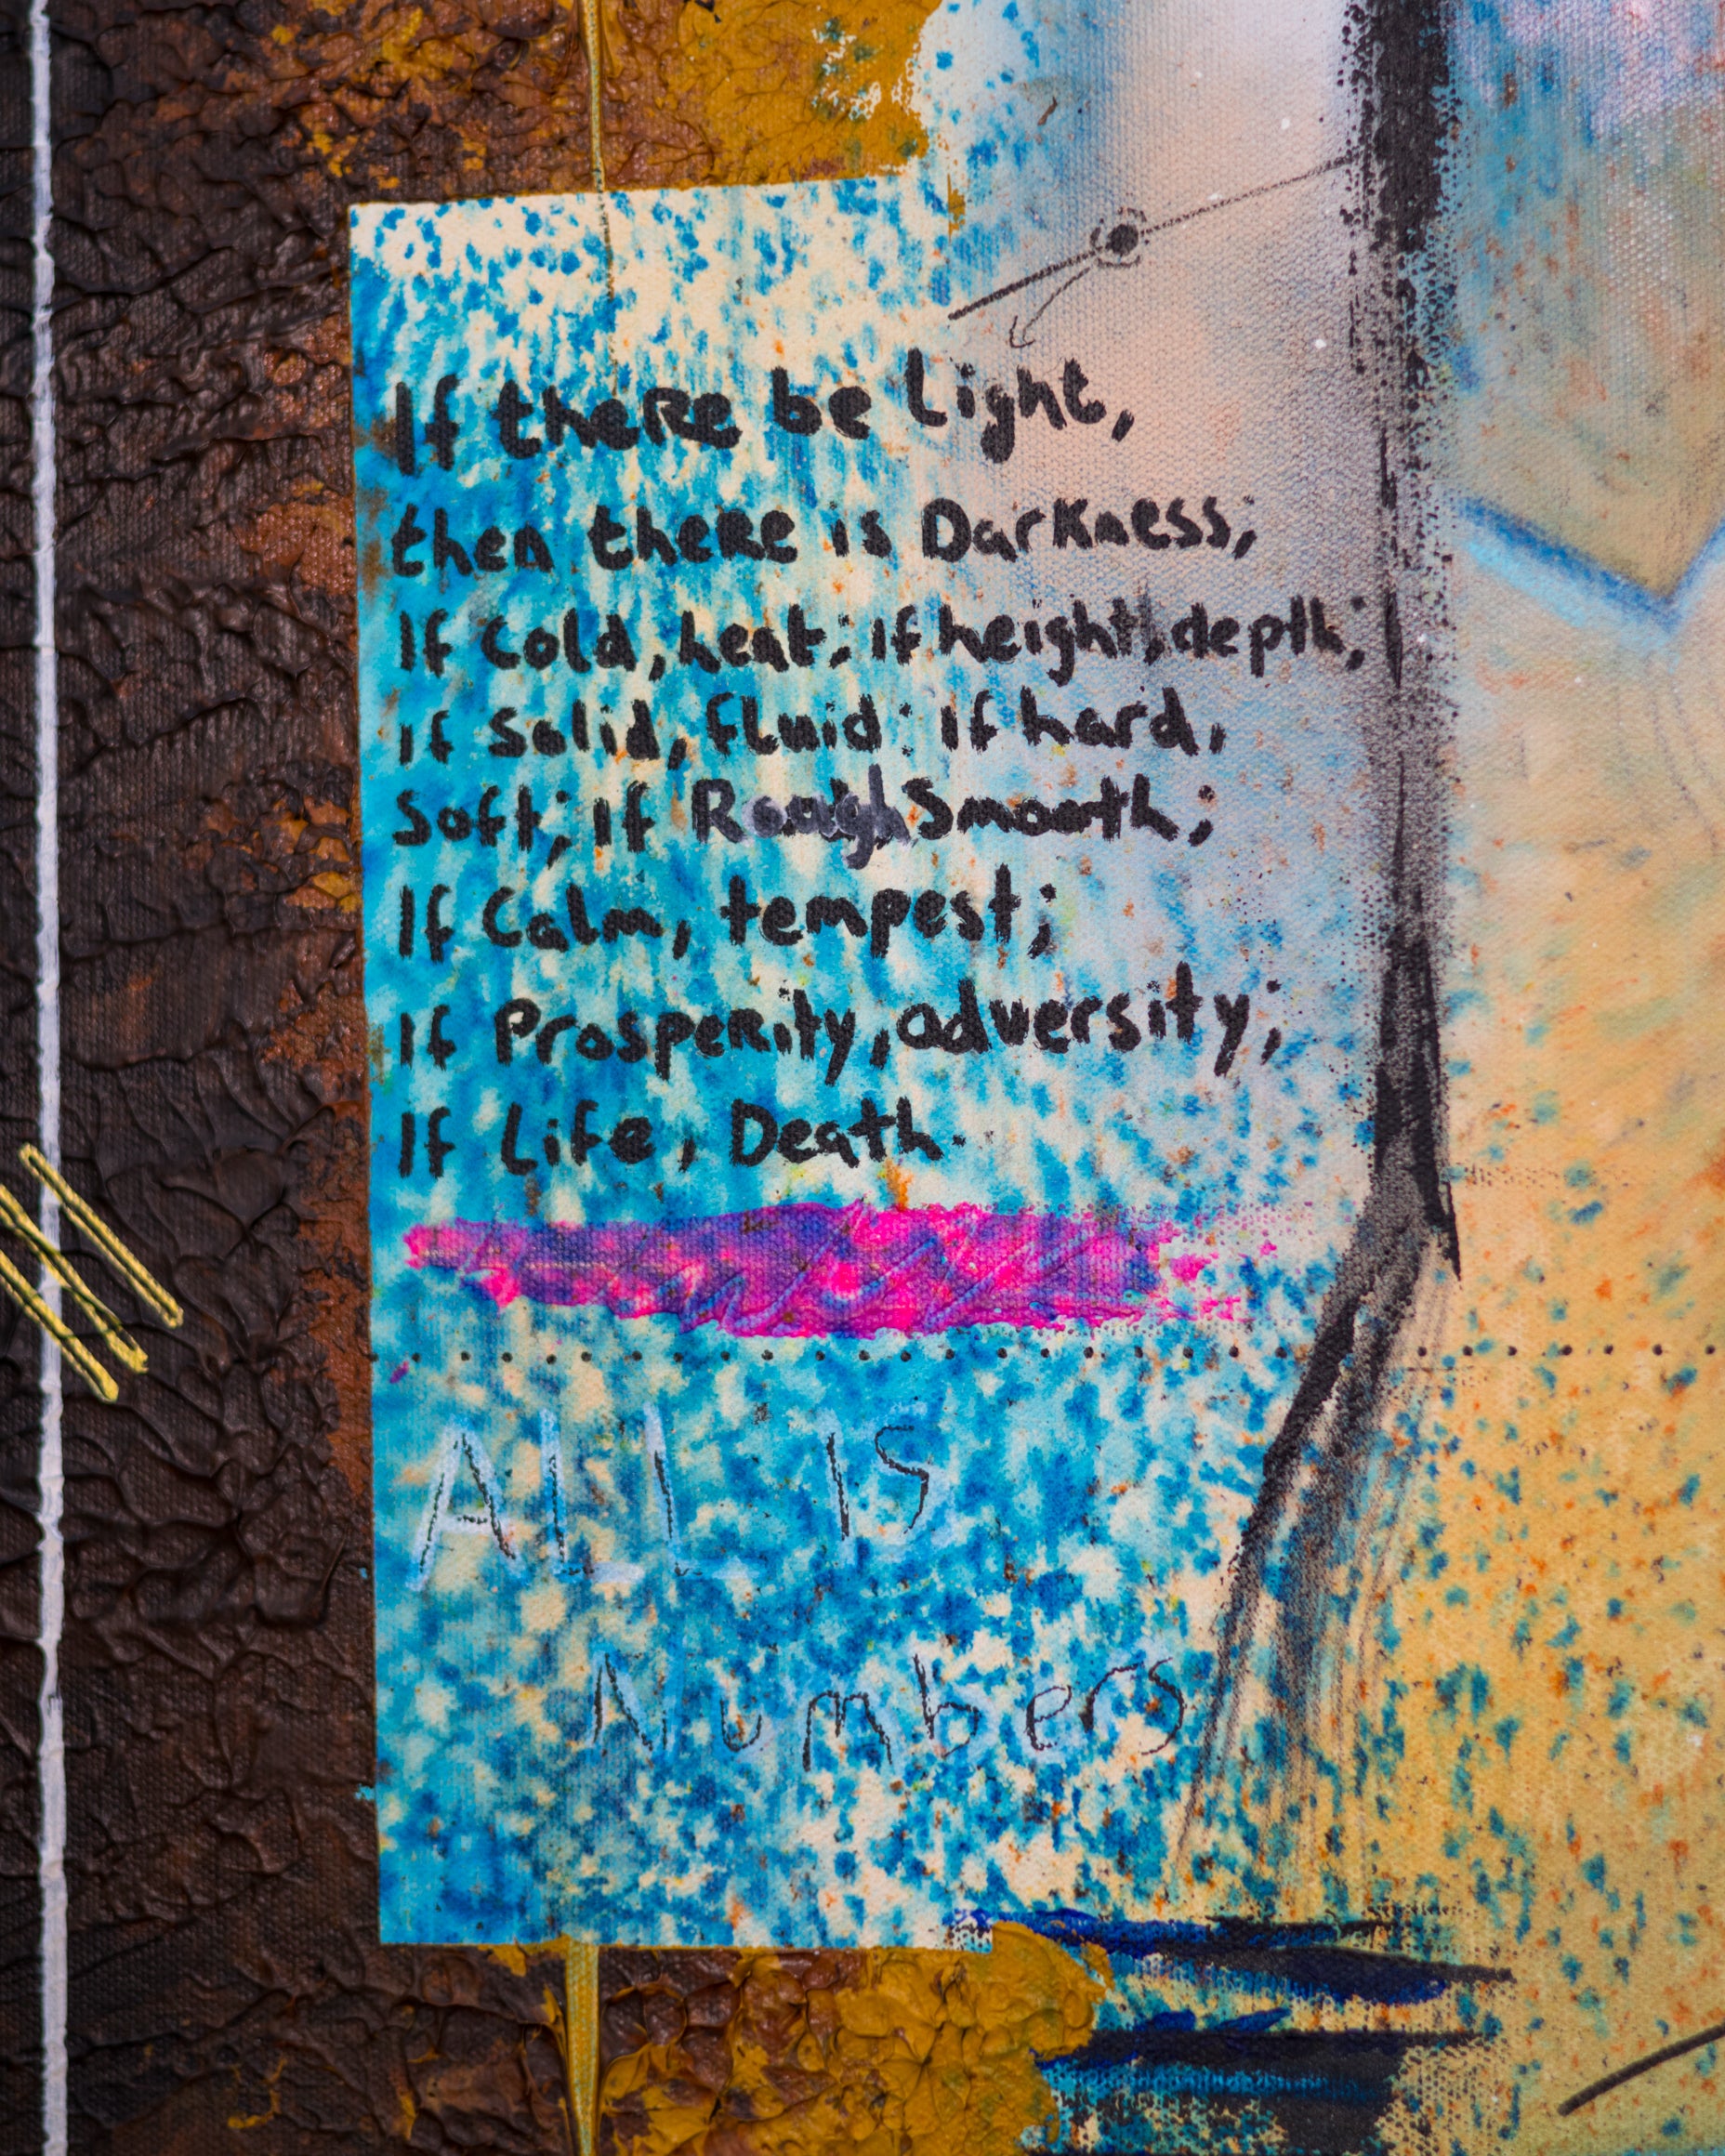 If there be Light,
then there is Darkness;
If Cold, heat; if height, depth;
if Solid, fluid; if hard,
Soft; if Rough Smooth;
If Calm, tempest;
If Prosperity, adversity;
If Life, Death.
ALL IS
Numbers